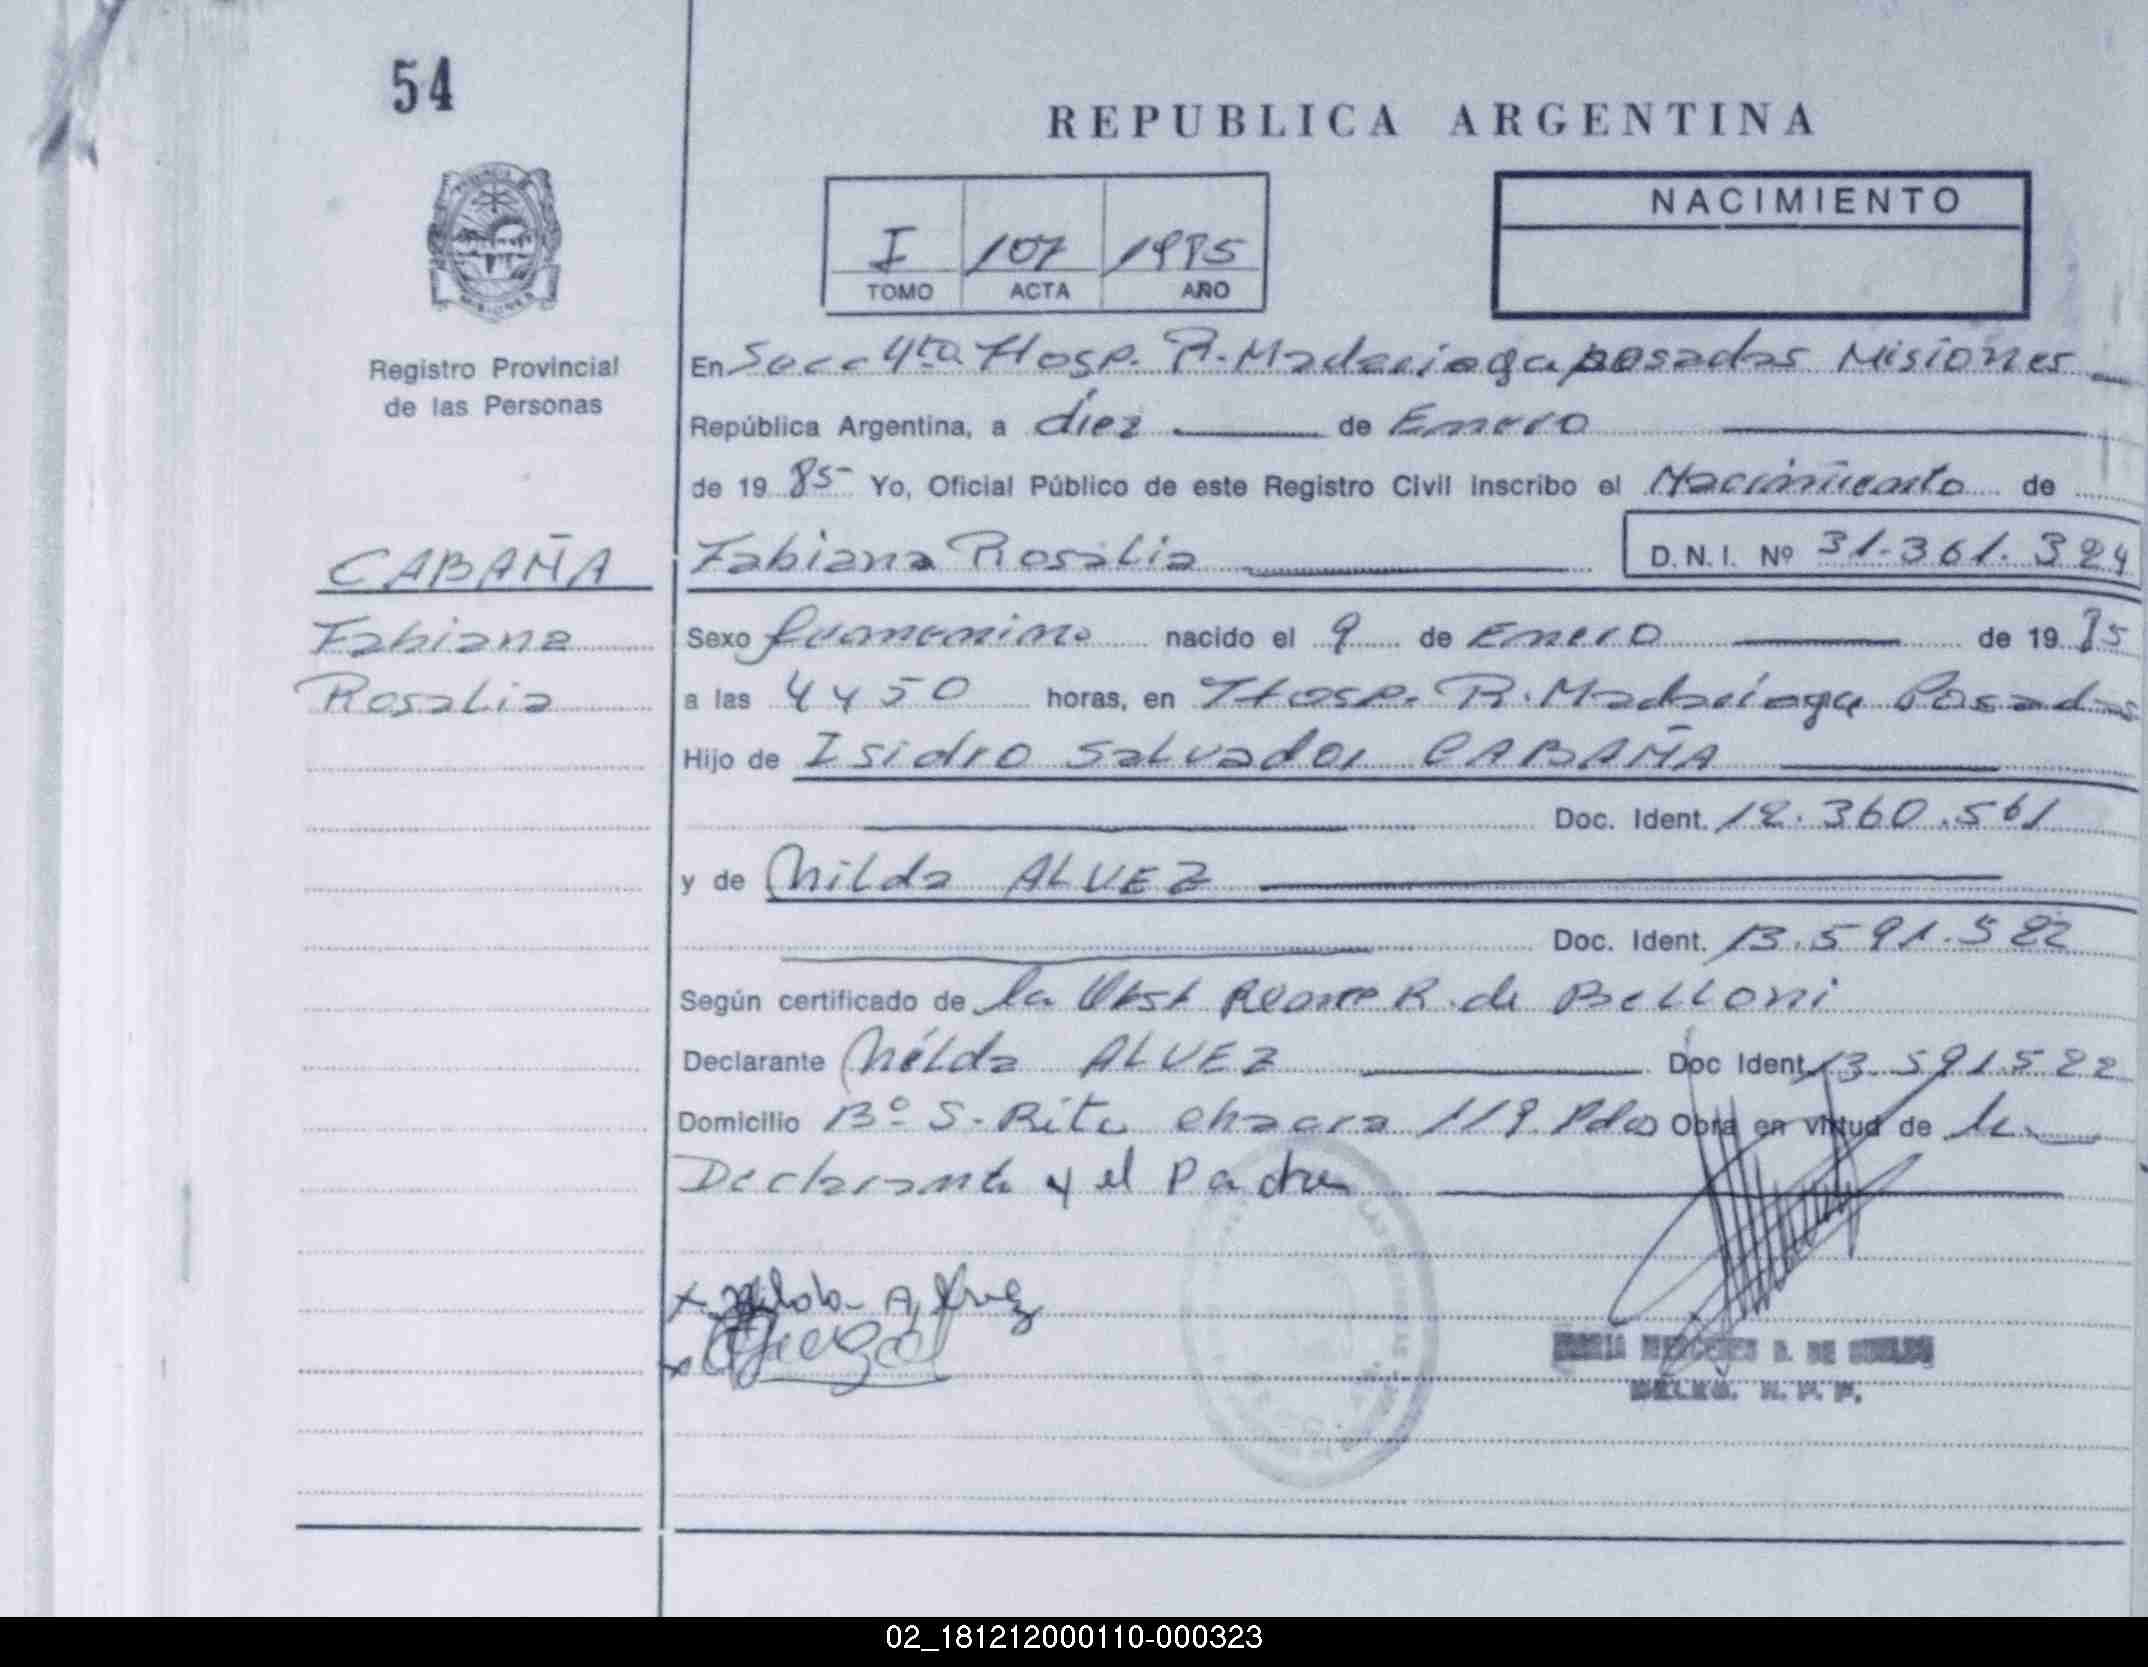 54
REPUBLICA ARGENTINA
NACIMIENTO
I 107 1985
TOMO ACTA AÑO
Registro Provincial
de las Personas
En Secc 4ta Hosp. R. Madariaga posadas Misiones
República Argentina, a diez de Enero
de 19 85 Yo, Oficial Público de este Registro Civil Inscribo el Nacimiento de
CABAÑA
Fabiana Rosalia D.N.I. Nº 31.361.324
Fabiana
Rosalia
Sexo femenino nacido el 9 de Enero de 19 85
a las 4 y 50 horas, en Hosp. R. Madariaga Posadas
Hijo de Isidro Salvador CABAÑA
Doc. Ident. 12.360.561
y de Nilda ALVEZ
Doc. Ident. 13.591.522
Según certificado de la Obst R. de Belloni
Declarante Nélda ALVEZ Doc Ident. 13.591.522
Domicilio Bº S. Rita chacra 119 Pdas Obra en virtud de la
Declarante y el Padre
DE
02_181212000110-000323